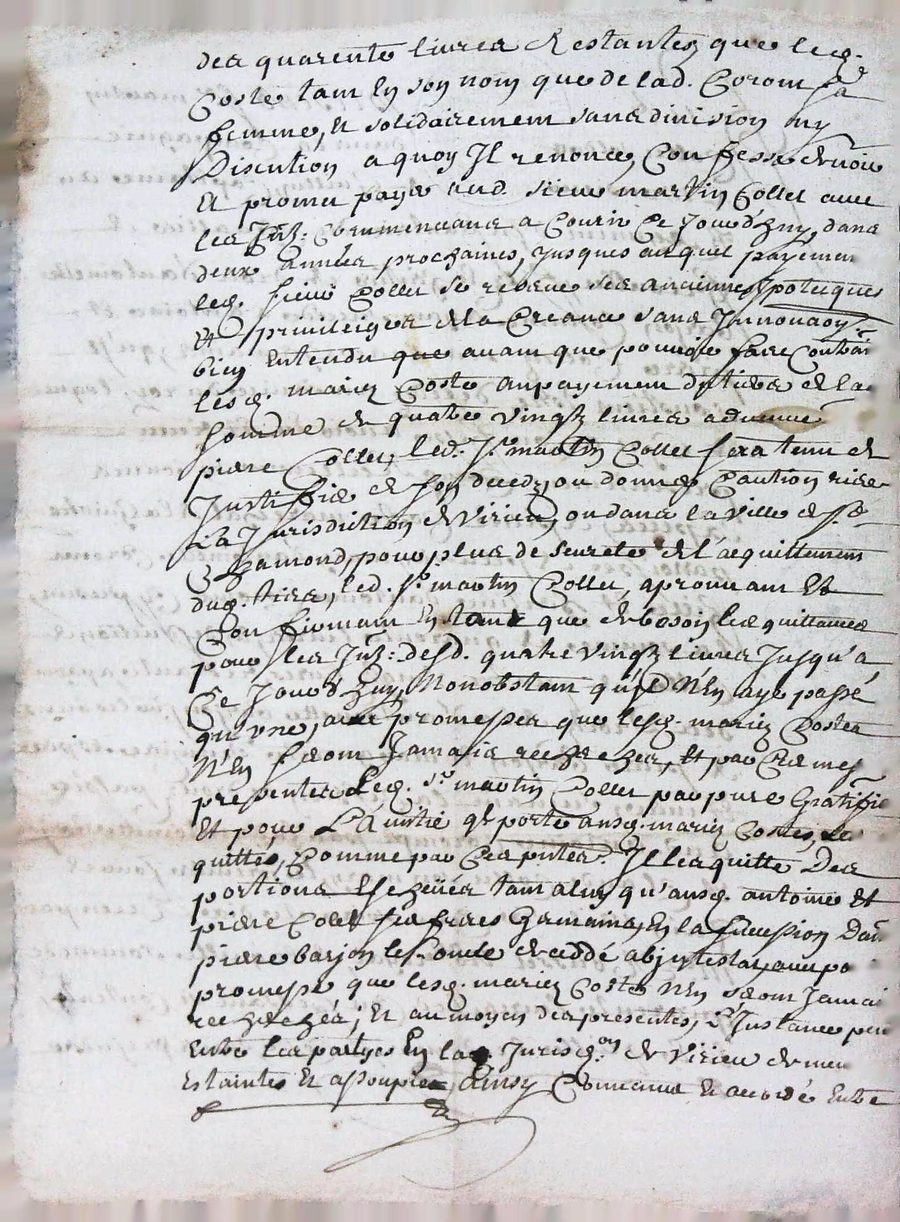 des quarente livres Restantes que led.
Coste tam En son nom que de lad. Corom sa
femme, Et solidairement sans division ny
Discution a quoy Il renonce, Confesse devoir
Et promet payer aud. sieur martin Collet avec
les Jntz. Commencans a Courir Ce Jourd'huy, dans
deux années prochaines, Jusques auquel payemen
led. sieur Collet se reserve ses anciennes ypoteques
Et privileiges de la Creance sans Jnnovaon.
bien Entendu que avant que pouvoir faire Contrain
lesd. mariez Coste au payement de la
somme de quatre vingtz livres advenue
pierre Collet, led. sr. martin Collet sera tenu de
Justiffier de son decedz, ou donner Caution riere
la Jurisdiction de Virieu, ou dans la ville de st.
Chamond, pour plus de seureté de l'acquittement
dud. tiers, led. sr. martin Collet, aprouvant Et
Confirmant En tant que de besoin les quittances
pour les Jntz. desd. quatre vingtz livres Jusqu'a
Ce Jourd'huy, Nonobstant qu'il N'En aye passé
qu'une, avec promesses que lesd. mariez Costes
N'En seront Jamais recherchez, Et par Ces mes
presentes led. sr. martin Collet par pure Gratiffic
Et pour L'amitié q'l porte ausd. mariez Costes, les
quitte, Comme par Ces pntes. Il les quitte Des
portions Escheües tant a luy qu'ausd. antoine Et
pierre Colet ses freres Germains, En la succession Dud.
pierre barjon leur oncle decedé abjntestat, avec
promesse que lesd. mariez Coste N'En seront Jamai
recherchés; Et au moyen des presentes, L'Jnstance pen
Entre les partyes En la Jurisd.on de Virieu demeu
Estaintes Et assoupies, Ainsy Convenu Et accordé Entre